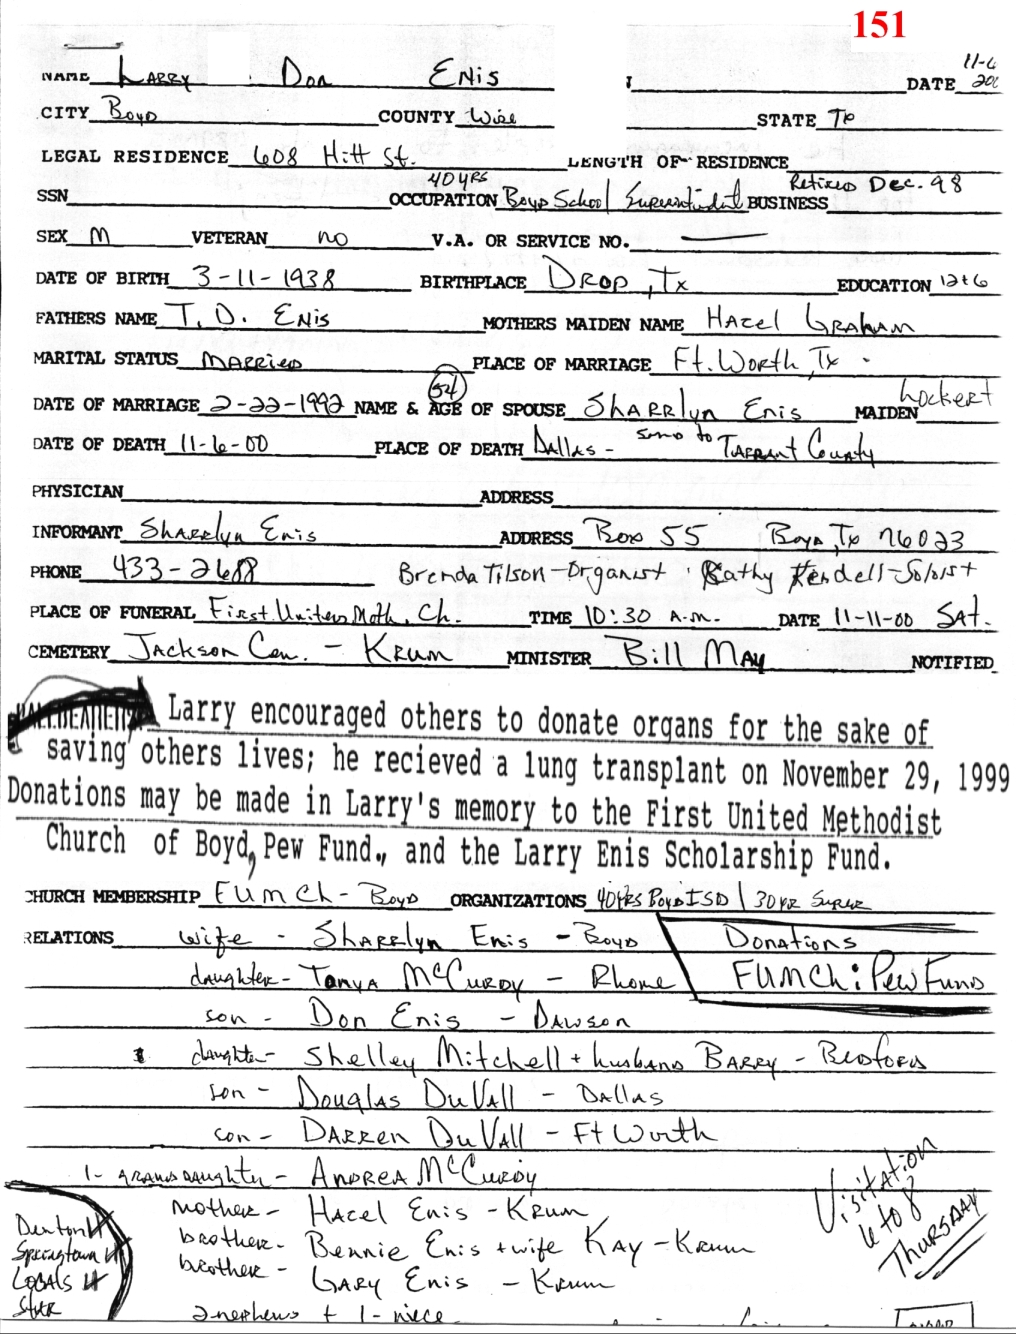 151
11-6
NAME Larry Don Enis DATE 200
CITY Boyd COUNTY Wise STATE Tx
LEGAL RESIDENCE 608 Hitt St. LENGTH OF RESIDENCE
40 yrs Retired Dec. 98
SSN OCCUPATION Boyd School Superintendent BUSINESS
SEX M VETERAN no V.A. OR SERVICE NO.
DATE OF BIRTH 3-11-1938 BIRTHPLACE Drop, Tx EDUCATION 12+6
FATHERS NAME T. D. Enis MOTHERS MAIDEN NAME Hazel Graham
MARITAL STATUS Married PLACE OF MARRIAGE Ft. Worth, Tx
54 Lockert
DATE OF MARRIAGE 2-22-1992 NAME & AGE OF SPOUSE Sharrlyn Enis MAIDEN
DATE OF DEATH 11-6-00 PLACE OF DEATH Dallas - send to Tarrant County
PHYSICIAN ADDRESS
INFORMANT Sharrlyn Enis ADDRESS Box 55 Boyd, Tx 76023
PHONE 433-2688 Brenda Tilson-Organist Kathy Kendell-Soloist
PLACE OF FUNERAL First United Meth. Ch. TIME 10:30 a.m. DATE 11-11-00 Sat.
CEMETERY Jackson Cem. - Krum MINISTER Bill May NOTIFIED
Larry encouraged others to donate organs for the sake of
saving others lives; he recieved a lung transplant on November 29, 1999
Donations may be made in Larry's memory to the First United Methodist
Church of Boyd, Pew Fund., and the Larry Enis Scholarship Fund.
CHURCH MEMBERSHIP FUMCh - Boyd ORGANIZATIONS 40 yrs Boyd ISD / 30 yr Super
RELATIONS wife - Sharrlyn Enis - Boyd Donations
daughter - Tanya McCurdy - Rhome FUMCh: Pew Fund
son - Don Enis - Dawson
daughter - Shelley Mitchell + husband Barry - Bedford
son - Douglas DuVall - Dallas
son - Darren DuVall - Ft Worth
1- granddaughter - Andrea McCurdy
mother - Hazel Enis - Krum
brother - Bennie Enis + wife Kay - Krum
brother - Gary Enis - Krum
2-nephews + 1-niece
Visitation
6 to 8
Thursday
Denton
Springtown
Locals
Star